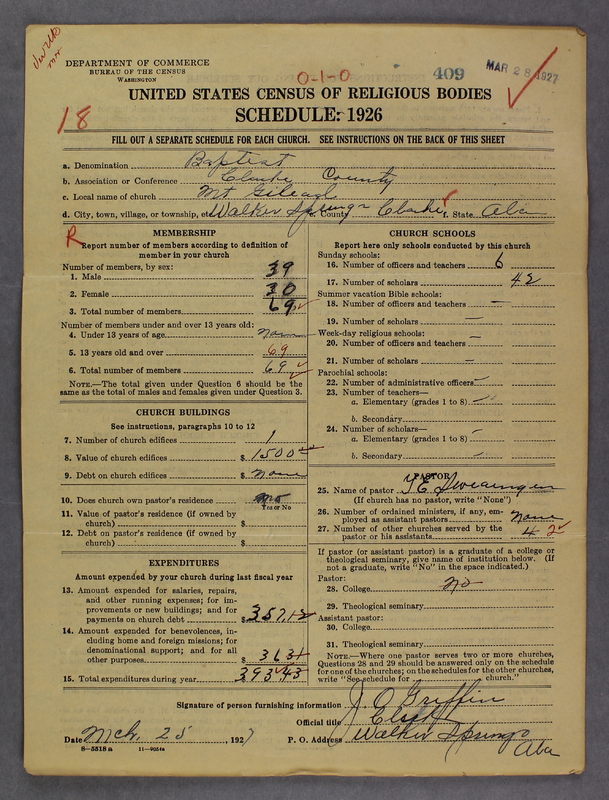 DEPARTMENT OF COMMERCE
BUREAU OF THE CENSUS
WASHINGTON
0-1-0
409
MAR 28 1927
UNITED STATES CENSUS OF RELIGIOUS BODIES
18
SCHEDULE: 1926
FILL OUT A SEPARATE SCHEDULE FOR EACH CHURCH. SEE INSTRUCTIONS ON THE BACK OF THIS SHEET
a. Denomination Baptist
b. Association or Conference Clarke County
c. Local name of church Mt Gilead
d. City, town, village, or township, etc. Walker Springs County Clarke State Aba
R
MEMBERSHIP
Report number of members according to definition of
member in your church
Number of members, by sex:
1. Male 39
2. Female 30
3. Total number of members 69
Number of members under and over 13 years old:
4. Under 13 years of age None
5. 13 years old and over 69
6. Total number of members 69
NOTE.—The total given under Question 6 should be the
same as the total of males and females given under Question 3.
CHURCH BUILDINGS
See instructions, paragraphs 10 to 12
7. Number of church edifices 1
8. Value of church edifices $ 1500
9. Debt on church edifices $ None
10. Does church own pastor's residence No
Yes or No
11. Value of pastor's residence (if owned by
church) $
12. Debt on pastor's residence (if owned by
church) $
EXPENDITURES
Amount expended by your church during last fiscal year
13. Amount expended for salaries, repairs,
and other running expenses; for im-
provements or new buildings; and for
payments on church debt $ 357.12
14. Amount expended for benevolences, in-
cluding home and foreign missions; for
denominational support; and for all
other purposes $ 3631
15. Total expenditures during year $ 393.43
CHURCH SCHOOLS
Report here only schools conducted by this church
Sunday schools:
16. Number of officers and teachers 6
17. Number of scholars 42
Summer vacation Bible schools:
18. Number of officers and teachers —
19. Number of scholars —
Week-day religious schools:
20. Number of officers and teachers —
21. Number of scholars —
Parochial schools:
22. Number of administrative officers —
23. Number of teachers—
a. Elementary (grades 1 to 8) —
b. Secondary
24. Number of scholars—
a. Elementary (grades 1 to 8) —
b. Secondary —
PASTOR
25. Name of pastor
(If church has no pastor, write "None")
26. Number of ordained ministers, if any, em-
ployed as assistant pastors None
27. Number of other churches served by the
pastor or his assistants 4 2
If pastor (or assistant pastor) is a graduate of a college or
theological seminary, give name of institution below. (If
not a graduate, write "No" in the space indicated.)
Pastor:
28. College No
29. Theological seminary
Assistant pastor:
30. College
31. Theological seminary
NOTE.—Where one pastor serves two or more churches,
Questions 28 and 29 should be answered only on the schedule
for one of the churches; on the schedules for the other churches,
write "See schedule for church."
Signature of person furnishing information J. O. Griffin
Official title Clerk
Date Mch. 25, 1927 P. O. Address Walker Springs
Aba
8-5518a 11-9054a